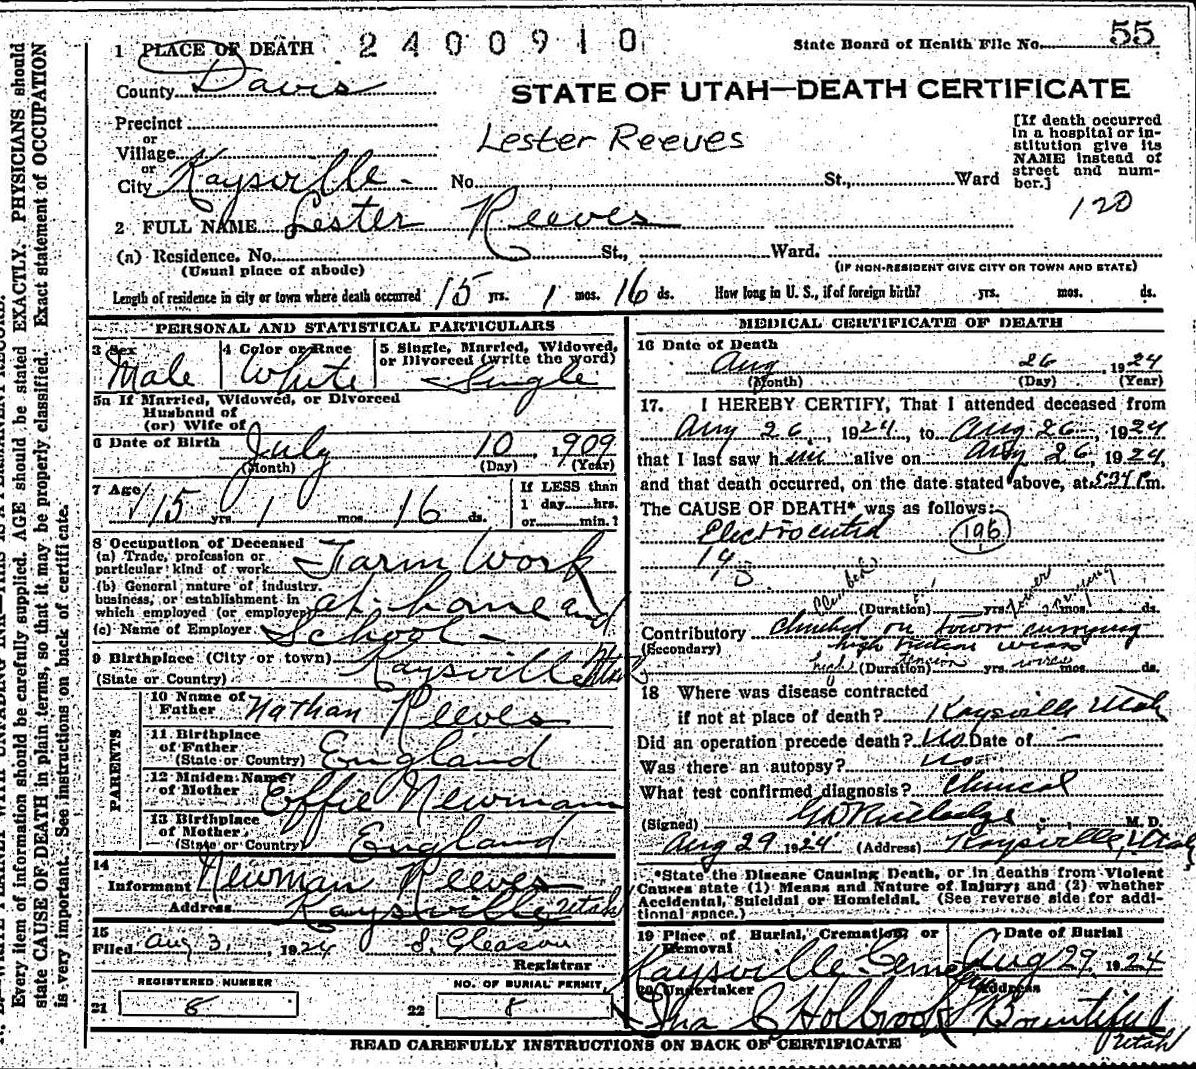 1 PLACE OF DEATH 2400910 State Board of Health File No. 55
County Davis
STATE OF UTAH—DEATH CERTIFICATE
Precinct
or
Village
or
City Kaysville No. St., Ward
Lester Reeves
[If death occurred
in a hospital or in-
stitution give its
NAME instead of
street and num-
ber.]
120
2 FULL NAME Lester Reeves
(a) Residence. No. St., Ward.
(Usual place of abode) (IF NON-RESIDENT GIVE CITY OR TOWN AND STATE)
Length of residence in city or town where death occurred 15 yrs. 1 mos. 16 ds. How long in U. S., if of foreign birth? yrs. mos. ds.
PERSONAL AND STATISTICAL PARTICULARS
3 Sex 4 Color or Race 5 Single, Married, Widowed,
or Divorced (write the word)
Male White Single
5a If Married, Widowed, or Divorced
Husband of
(or) Wife of
6 Date of Birth July 10, 1909
(Month) (Day) (Year)
7 Age 15 yrs. 1 mos. 16 ds. If LESS than
1 day hrs.
or min.?
8 Occupation of Deceased
(a) Trade, profession or
particular kind of work Farm Work
(b) General nature of industry,
business, or establishment in
which employed (or employer) at home and
(c) Name of Employer School
9 Birthplace (City or town) Kaysville Utah
(State or Country)
PARENTS
10 Name of
Father Nathan Reeves
11 Birthplace
of Father England
(State or Country)
12 Maiden Name
of Mother Effie Newman
13 Birthplace
of Mother England
(State or Country)
14
Informant Newman Reeves
Address Kaysville Utah
15
Filed Aug 31, 1924 S. Gleason
Registrar
REGISTERED NUMBER NO. OF BURIAL PERMIT
21 8 22 8
MEDICAL CERTIFICATE OF DEATH
16 Date of Death
Aug 26 1924
(Month) (Day) (Year)
17. I HEREBY CERTIFY, That I attended deceased from
Aug 26, 1924, to Aug 26, 1924
that I last saw him alive on Aug 26, 1924,
and that death occurred, on the date stated above, at m.
The CAUSE OF DEATH* was as follows:
Electrocuted 196
Climbed
(Duration) yrs. mos. ds.
Contributory climbed on carrying
(Secondary) high tension wires
high tension wires
(Duration) yrs. mos. ds.
18 Where was disease contracted
if not at place of death? Kaysville Utah
Did an operation precede death? No Date of —
Was there an autopsy? No
What test confirmed diagnosis? Clinical
(Signed) G D Rutledge M. D.
Aug 29 1924 (Address) Kaysville, Utah
*State the Disease Causing Death, or in deaths from Violent
Causes state (1) Means and Nature of Injury; and (2) whether
Accidental, Suicidal or Homicidal. (See reverse side for addi-
tional space.)
19 Place of Burial, Cremation, or Removal Date of Burial
Kaysville Cemetery Aug 29, 1924
20 Undertaker Address
Ina C Holbrook Bountiful
Utah
READ CAREFULLY INSTRUCTIONS ON BACK OF CERTIFICATE
Every item of information should be carefully supplied. AGE should be stated EXACTLY. PHYSICIANS should
state CAUSE OF DEATH in plain terms, so that it may be properly classified. Exact statement of OCCUPATION
is very important. See instructions on back of certificate.